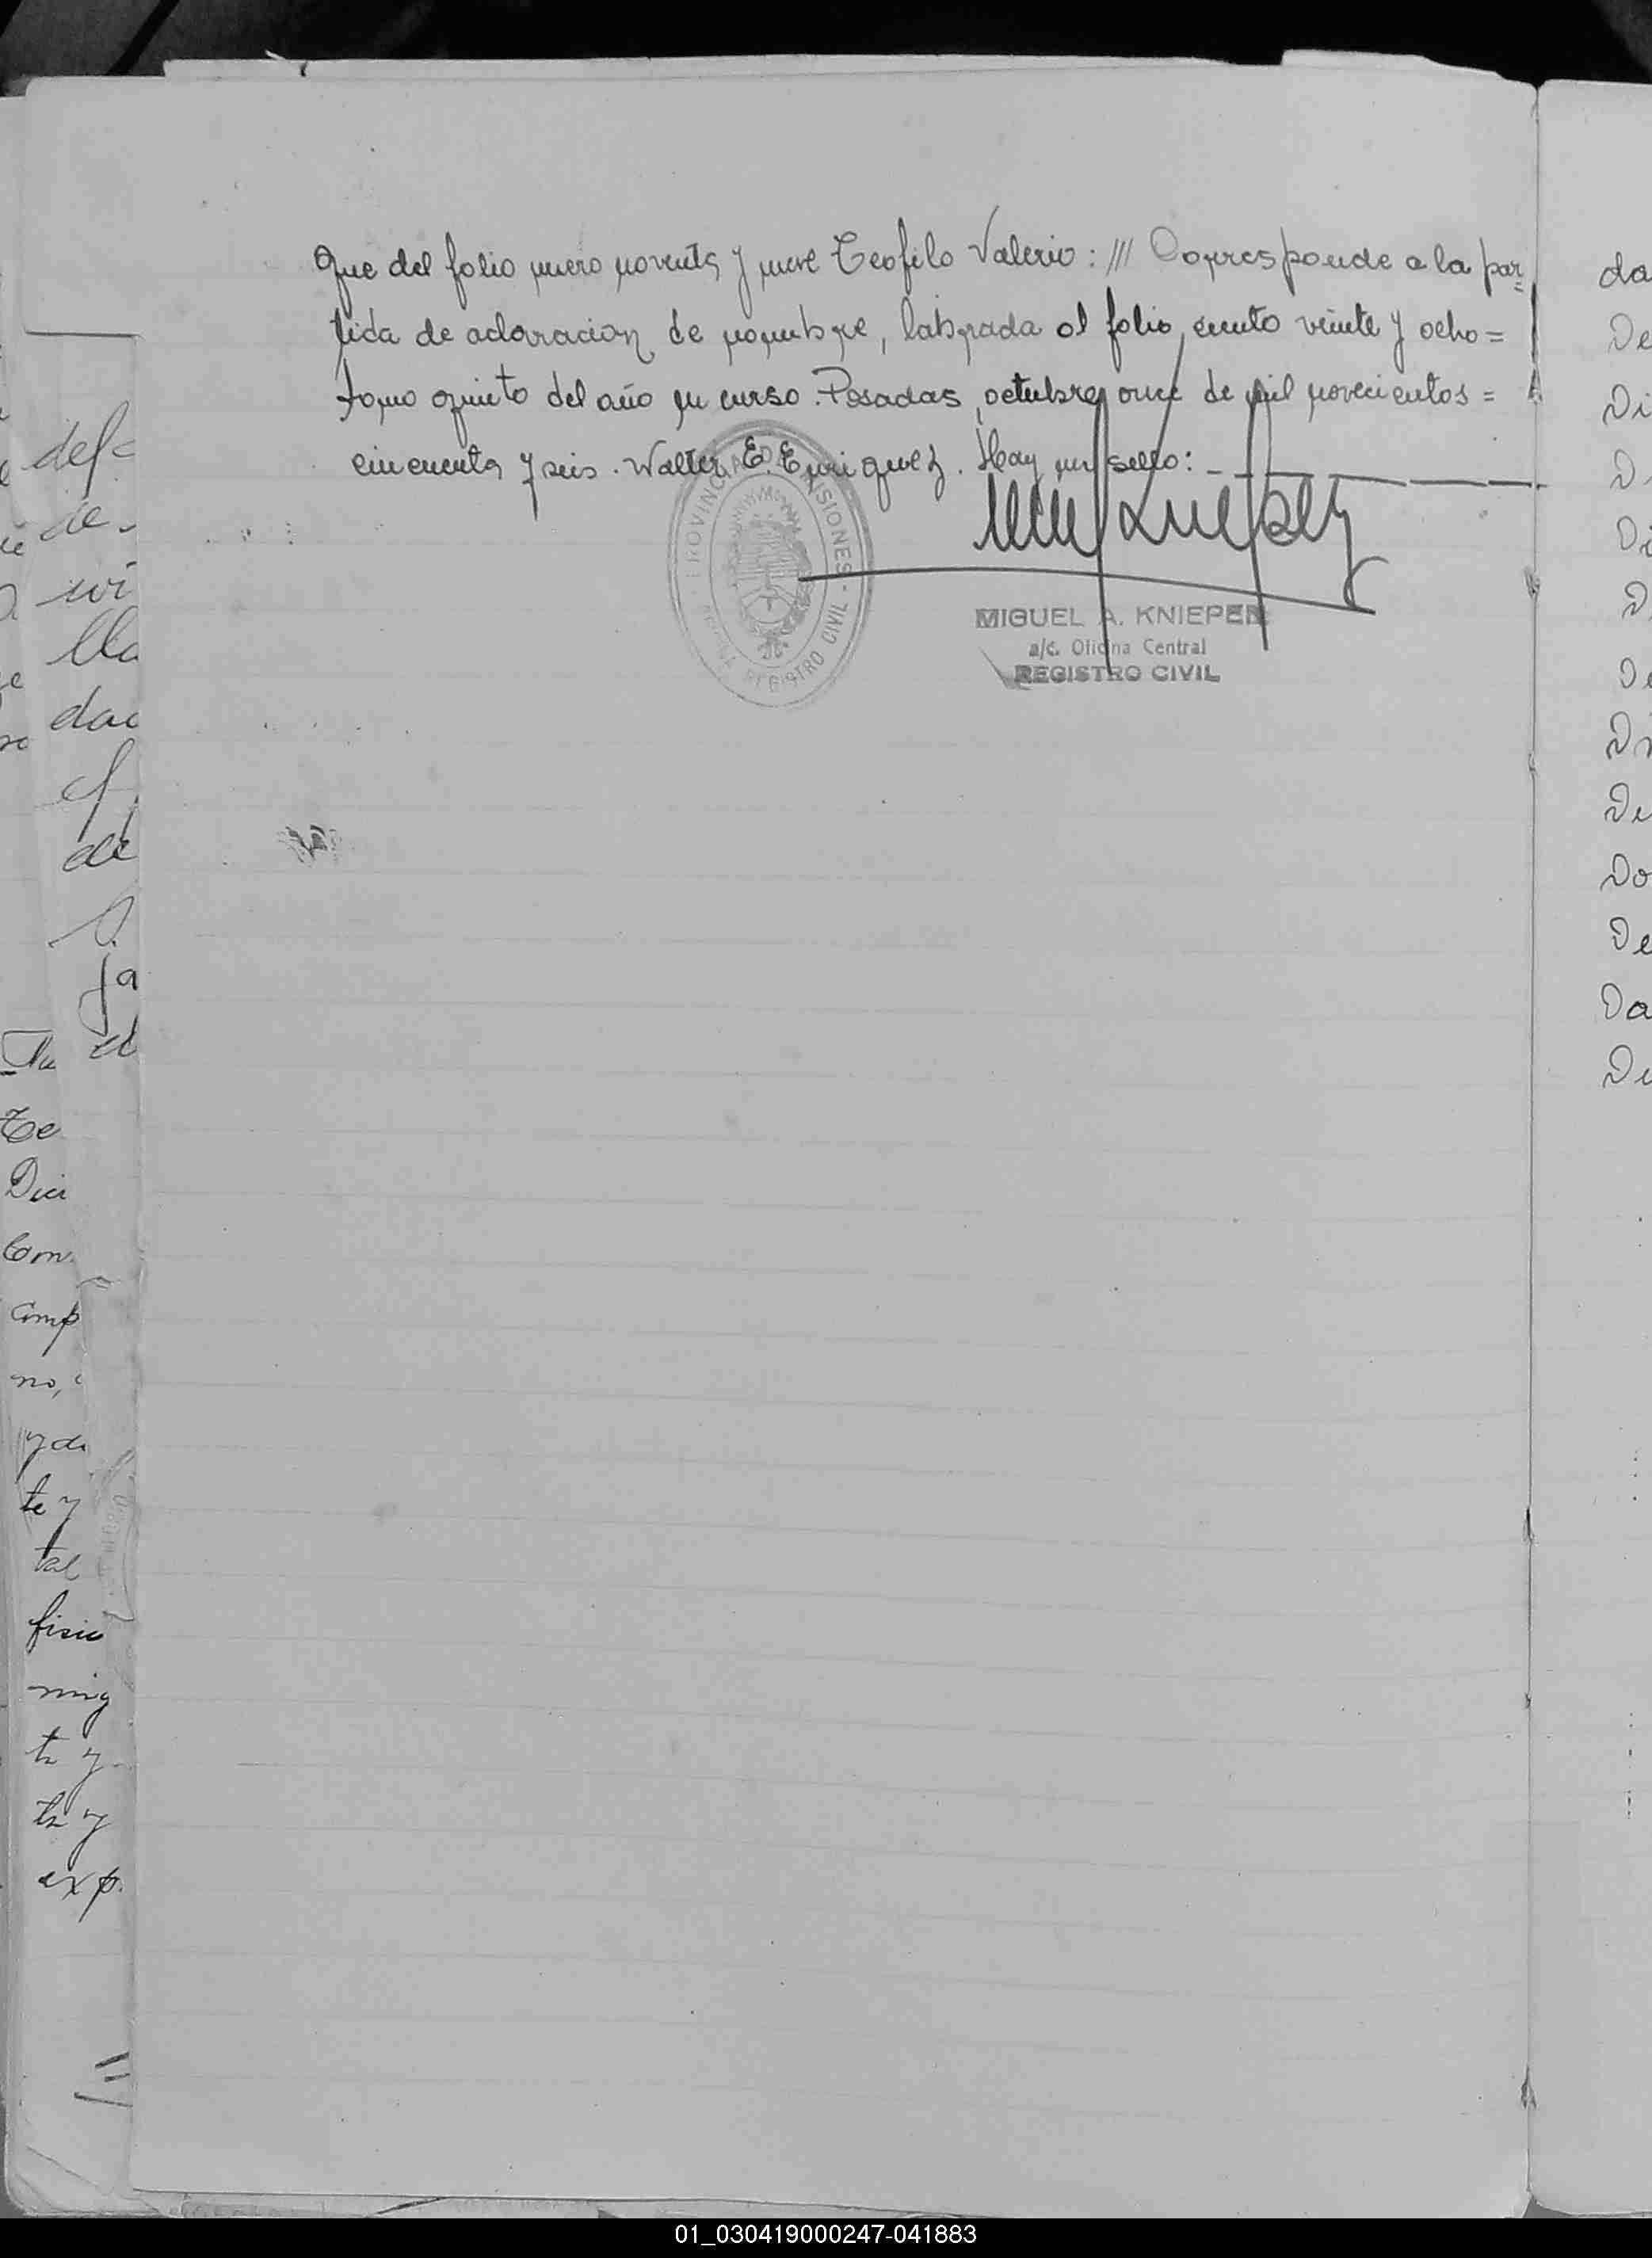 Que del folio nuero noventa y nueve Teofilo Valerio: /// Corresponde a la par=
tida de aclaracion de nombre, labrada al folio ciento veinte y ocho=
tomo quinto del año en curso. Posadas, octubre once de mil novecientos=
cincuenta y seis. Walter E. Enriquez. Hay un sello:
PROVINCIA DE MISIONES
REGISTRO CIVIL
MIGUEL A. KNIEPER
a/c. Oficina Central
REGISTRO CIVIL
def=
de
wi
lla
de
fa
el
Te
Com
Comp
no,
te y
tal
ning
exp.
da
De
Di
Di
De
De
Do
De
Da
De
01_030419000247-041883